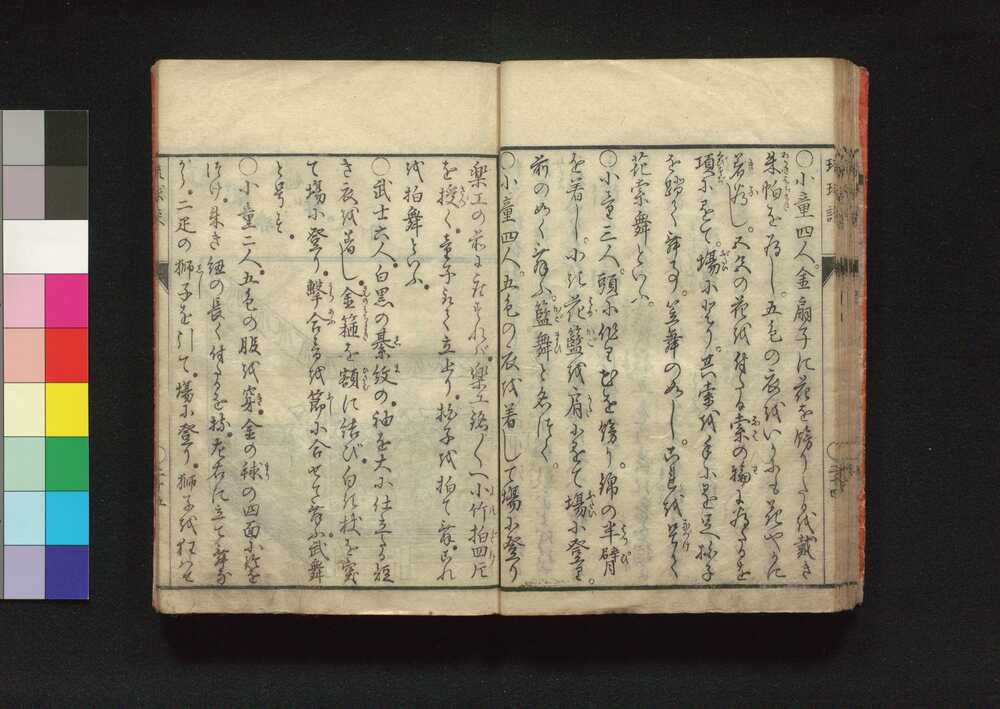 琉球談
○小童四人。金扇子に花を餝りたるを戴き
朱帕を為し。五色の衣をいかにも花やかに
著為し。五色の花を付たる索の輪になりたるを
項にかけて。場に登り。其索を手にかけ足拍子
を踏て舞ふ。笠舞のごとし。これを号て
花索舞といふ。
○小童三人。頭に作り花を餝り。綿の半臂
を著し。小き花籃を肩にかけて場に登り。
前のごとく舞ふ。籃舞と名づく。
○小童四人。五色の衣を着して場に登り
楽工の前に立ならべば。楽工銘々へ小竹拍四片
を授く。童子立上り。拍子を拍て舞。これ
を拍舞といふ。
○武士六人。白黒の綦紋の。袖を大に仕立たる短
き衣を着し。金箍を額に結び。白き杖を突
て場に登り。撃合を節に合せて舞ふ。武舞
と号す。
○小童二人。五色の服を穿。金の毬の四面に鈴を
つけ。朱き紐の長く付たるを持。左右に立て舞な
がら。二疋の獅子を引て。場に登り。獅子を狂はせ